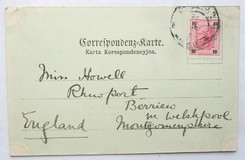 Correspondenz-Karte.
Karta Korespondencyjna.
Miss Howell
Rhiewport
Berriew
nr Welshpool
England Montgomeryshire
10 10